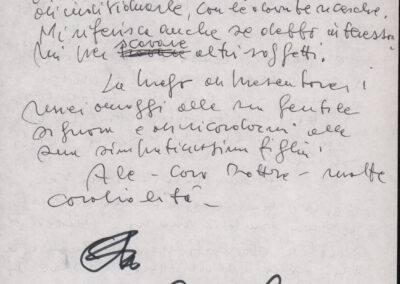 indirizzarle, con le dovute ricerche.
Mi riferisca anche se debbo interessar
mi per scovare altri soggetti.
La prego di presentare i
miei omaggi alla sua gentile
signora e di ricordarmi alle
sue simpaticissime figlie!
A Le - Caro Dottore - molte
cordialità -